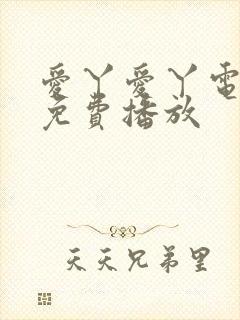 愛丫愛丫電
免費播放
天天兄弟里